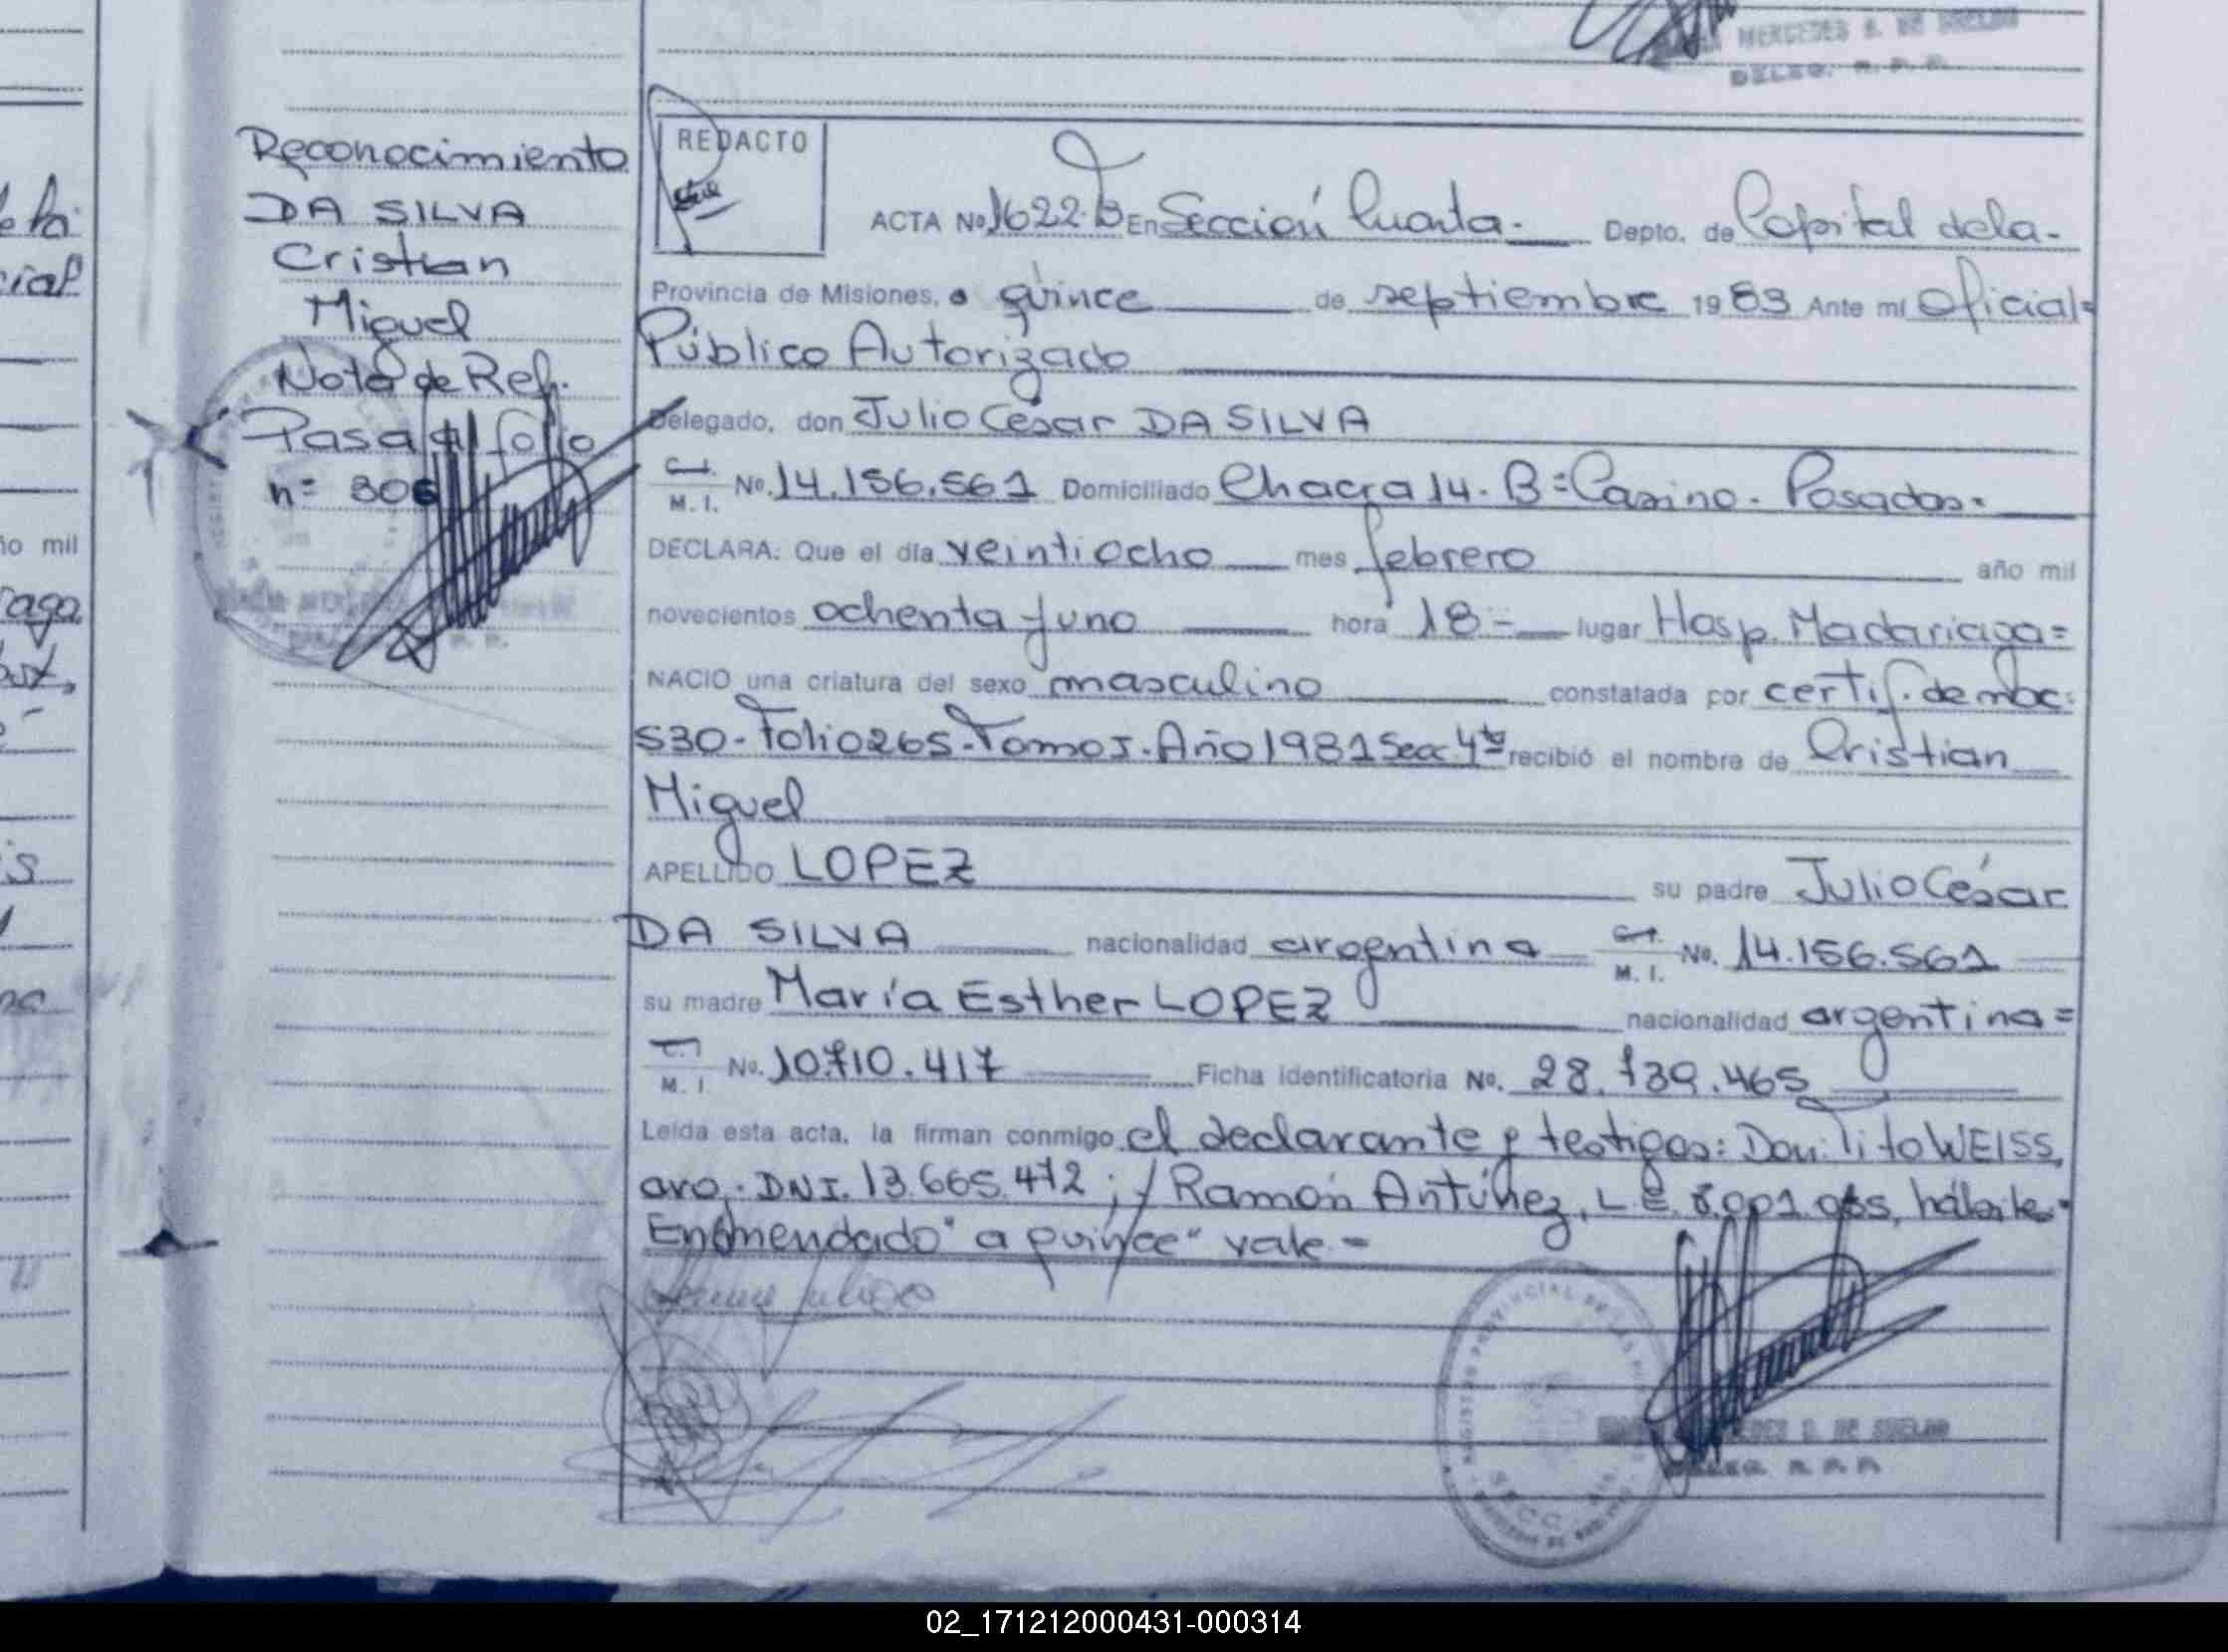 MERCEDES B. DE SUELDO
DELEG. R. P. P.
Reconocimiento
DA SILVA
Cristian
Miguel
Nota de Ref.
Pasa al folio
n= 306
REDACTO
ACTA No 1622.B En Sección Cuarta.- Depto. de Capital dela-
Provincia de Misiones, a quince de septiembre 1983 Ante mí Oficial=
Público Autorizado
Delegado, don Julio César DA SILVA
C.I. M. I. No. 14.156.561 Domiciliado Chacra 14. B=Casino. Posadas.
DECLARA: Que el día veintiocho mes febrero año mil
novecientos ochenta y uno hora 18 - lugar Hosp. Madariaga=
NACIO una criatura del sexo masculino constatada por certif. de nac.
530-Folio265-Tomo I. Año 1981 Secc. 4ta recibió el nombre de Cristian
Miguel
APELLIDO LOPEZ su padre Julio César
DA SILVA nacionalidad argentina C.I. M. I. No. 14.156.561
su madre María Esther LOPEZ nacionalidad argentina=
C.I. M. I. No. 10.710.417 Ficha identificatoria No. 28.739.465
Leída esta acta, la firman conmigo el declarante y testigos: Don: Tito WEISS,
arg. DNI. 13.665.472; y Ramón Antúnez, L.E. hábiles.
Enmendado "a quince" vale.=
DE SUELDO
DELEG. R. P. P.
ño mil
02_171212000431-000314